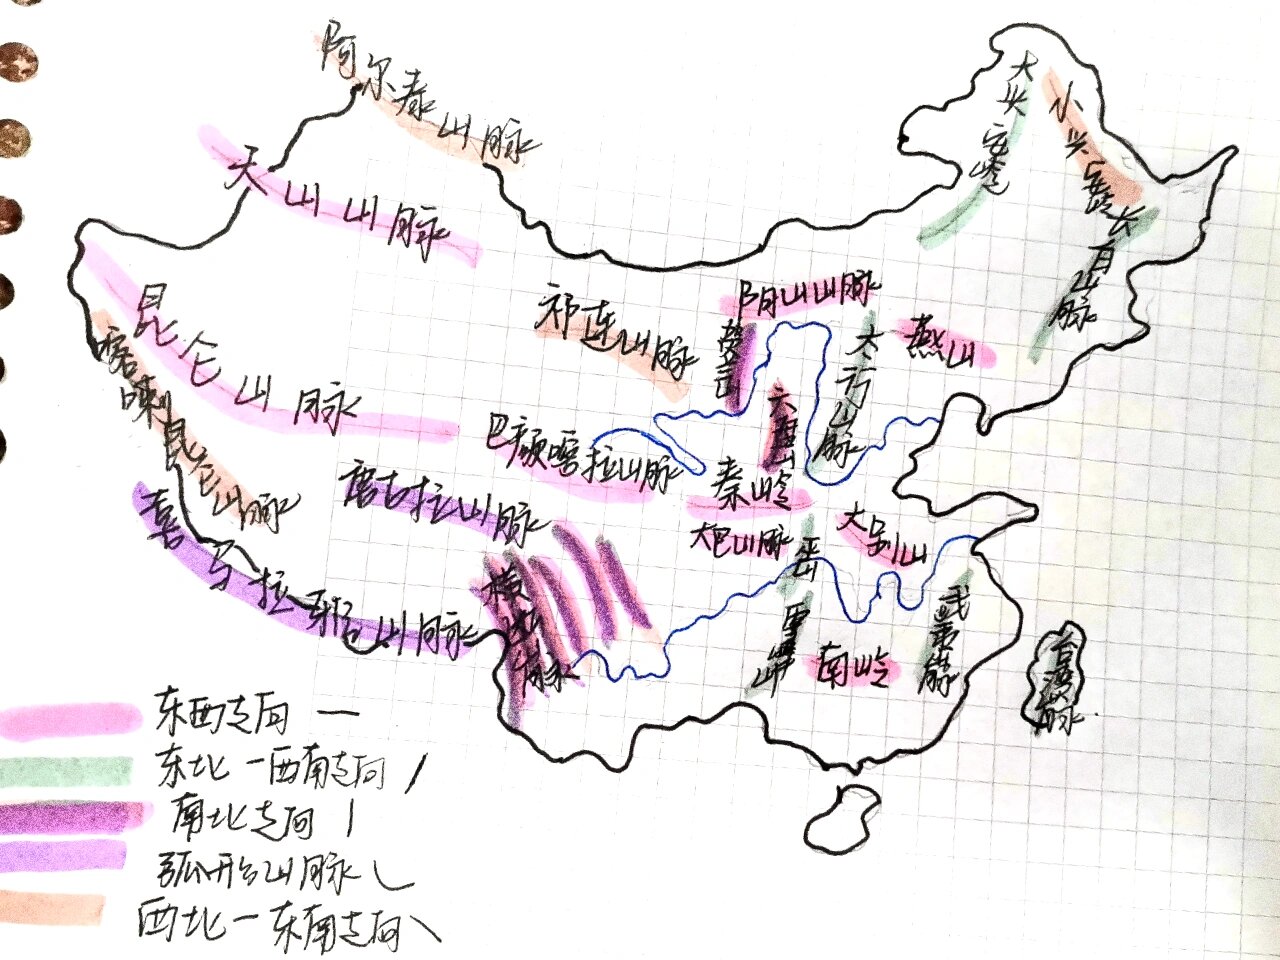 阿尔泰山脉
天山山脉
大兴安岭
小兴安岭
长白山脉
昆仑山脉
喀喇昆仑山脉
祁连山脉
阴山山脉
贺兰山
太行山脉
燕山
六盘山
巴颜喀拉山脉
秦岭
唐古拉山脉
大巴山脉
大别山
巫山
喜马拉雅山脉
横断山脉
雪峰山
南岭
武夷山脉
台湾山脉
东西走向 一
东北一西南走向 /
南北走向 |
弧形山脉
西北一东南走向 \